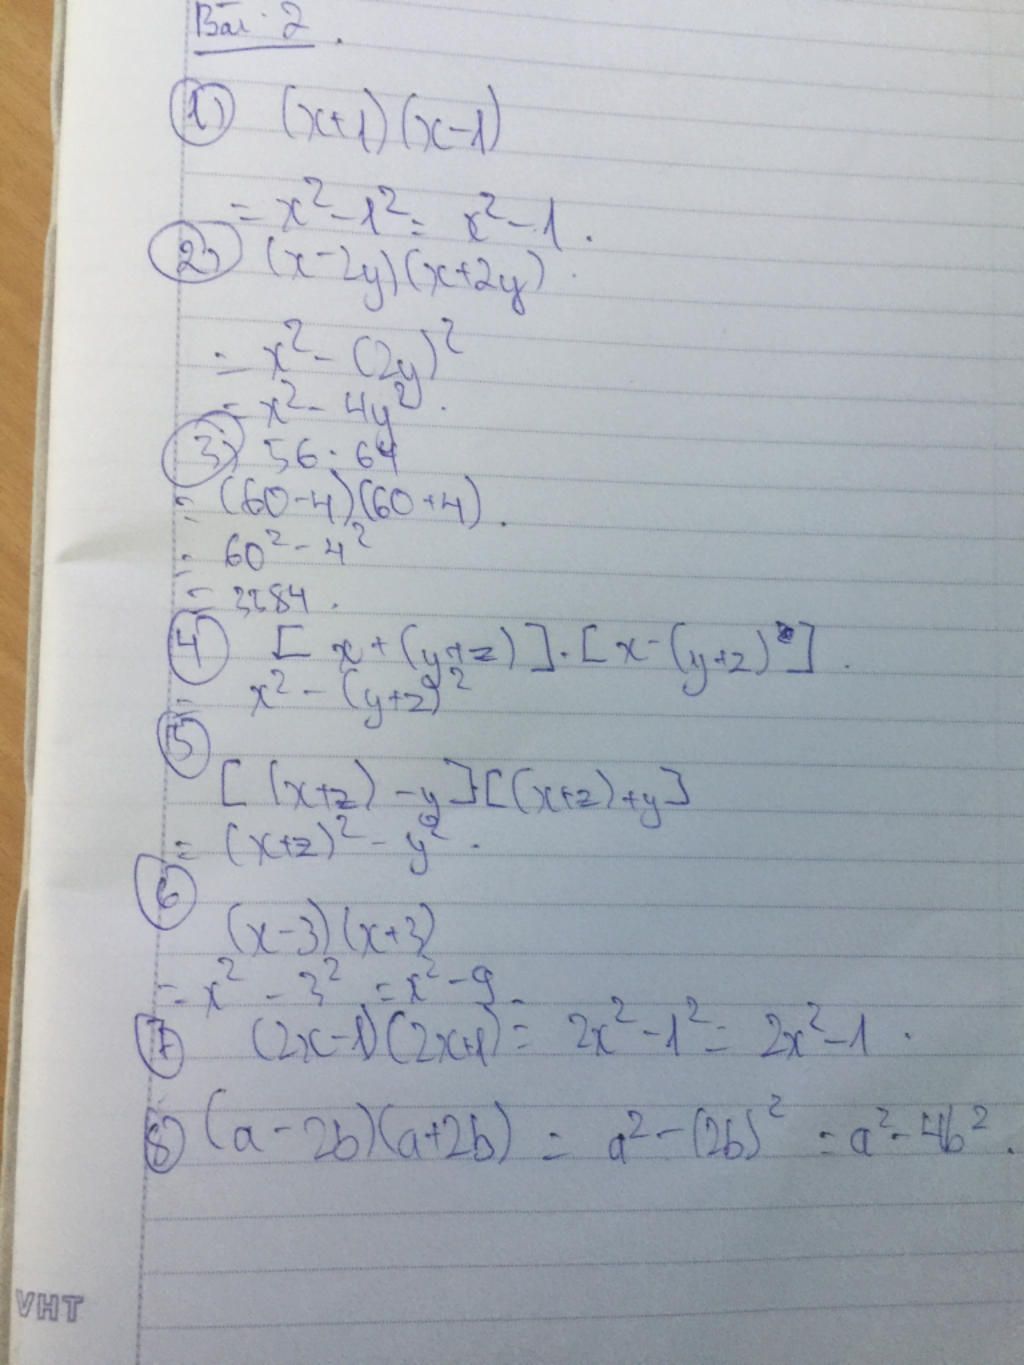 Bài 2.
1) (x+1)(x-1)
= x² - 1² = x² - 1.
2) (x-2y)(x+2y).
= x² - (2y)²
= x² - 4y².
3) 56 . 64
= (60-4)(60+4).
= 60² - 4²
= 3584.
4) [x+(y+z)].[x-(y+z)].
= x² - (y+z)²
5
[(x+z) -y].[(x+z)+y]
= (x+z)² - y².
6
(x-3)(x+3)
= x² - 3² = x² - 9
7 (2x-1)(2x+1) = 2x² - 1² = 2x² - 1.
8) (a-2b)(a+2b) = a² - (2b)² = a² - 4b².
VHT